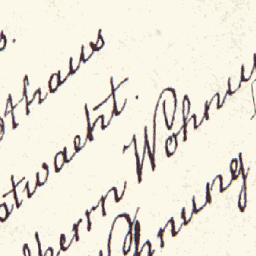 s.
othaus
atwacht.
lherrn Wohnu
ohnung